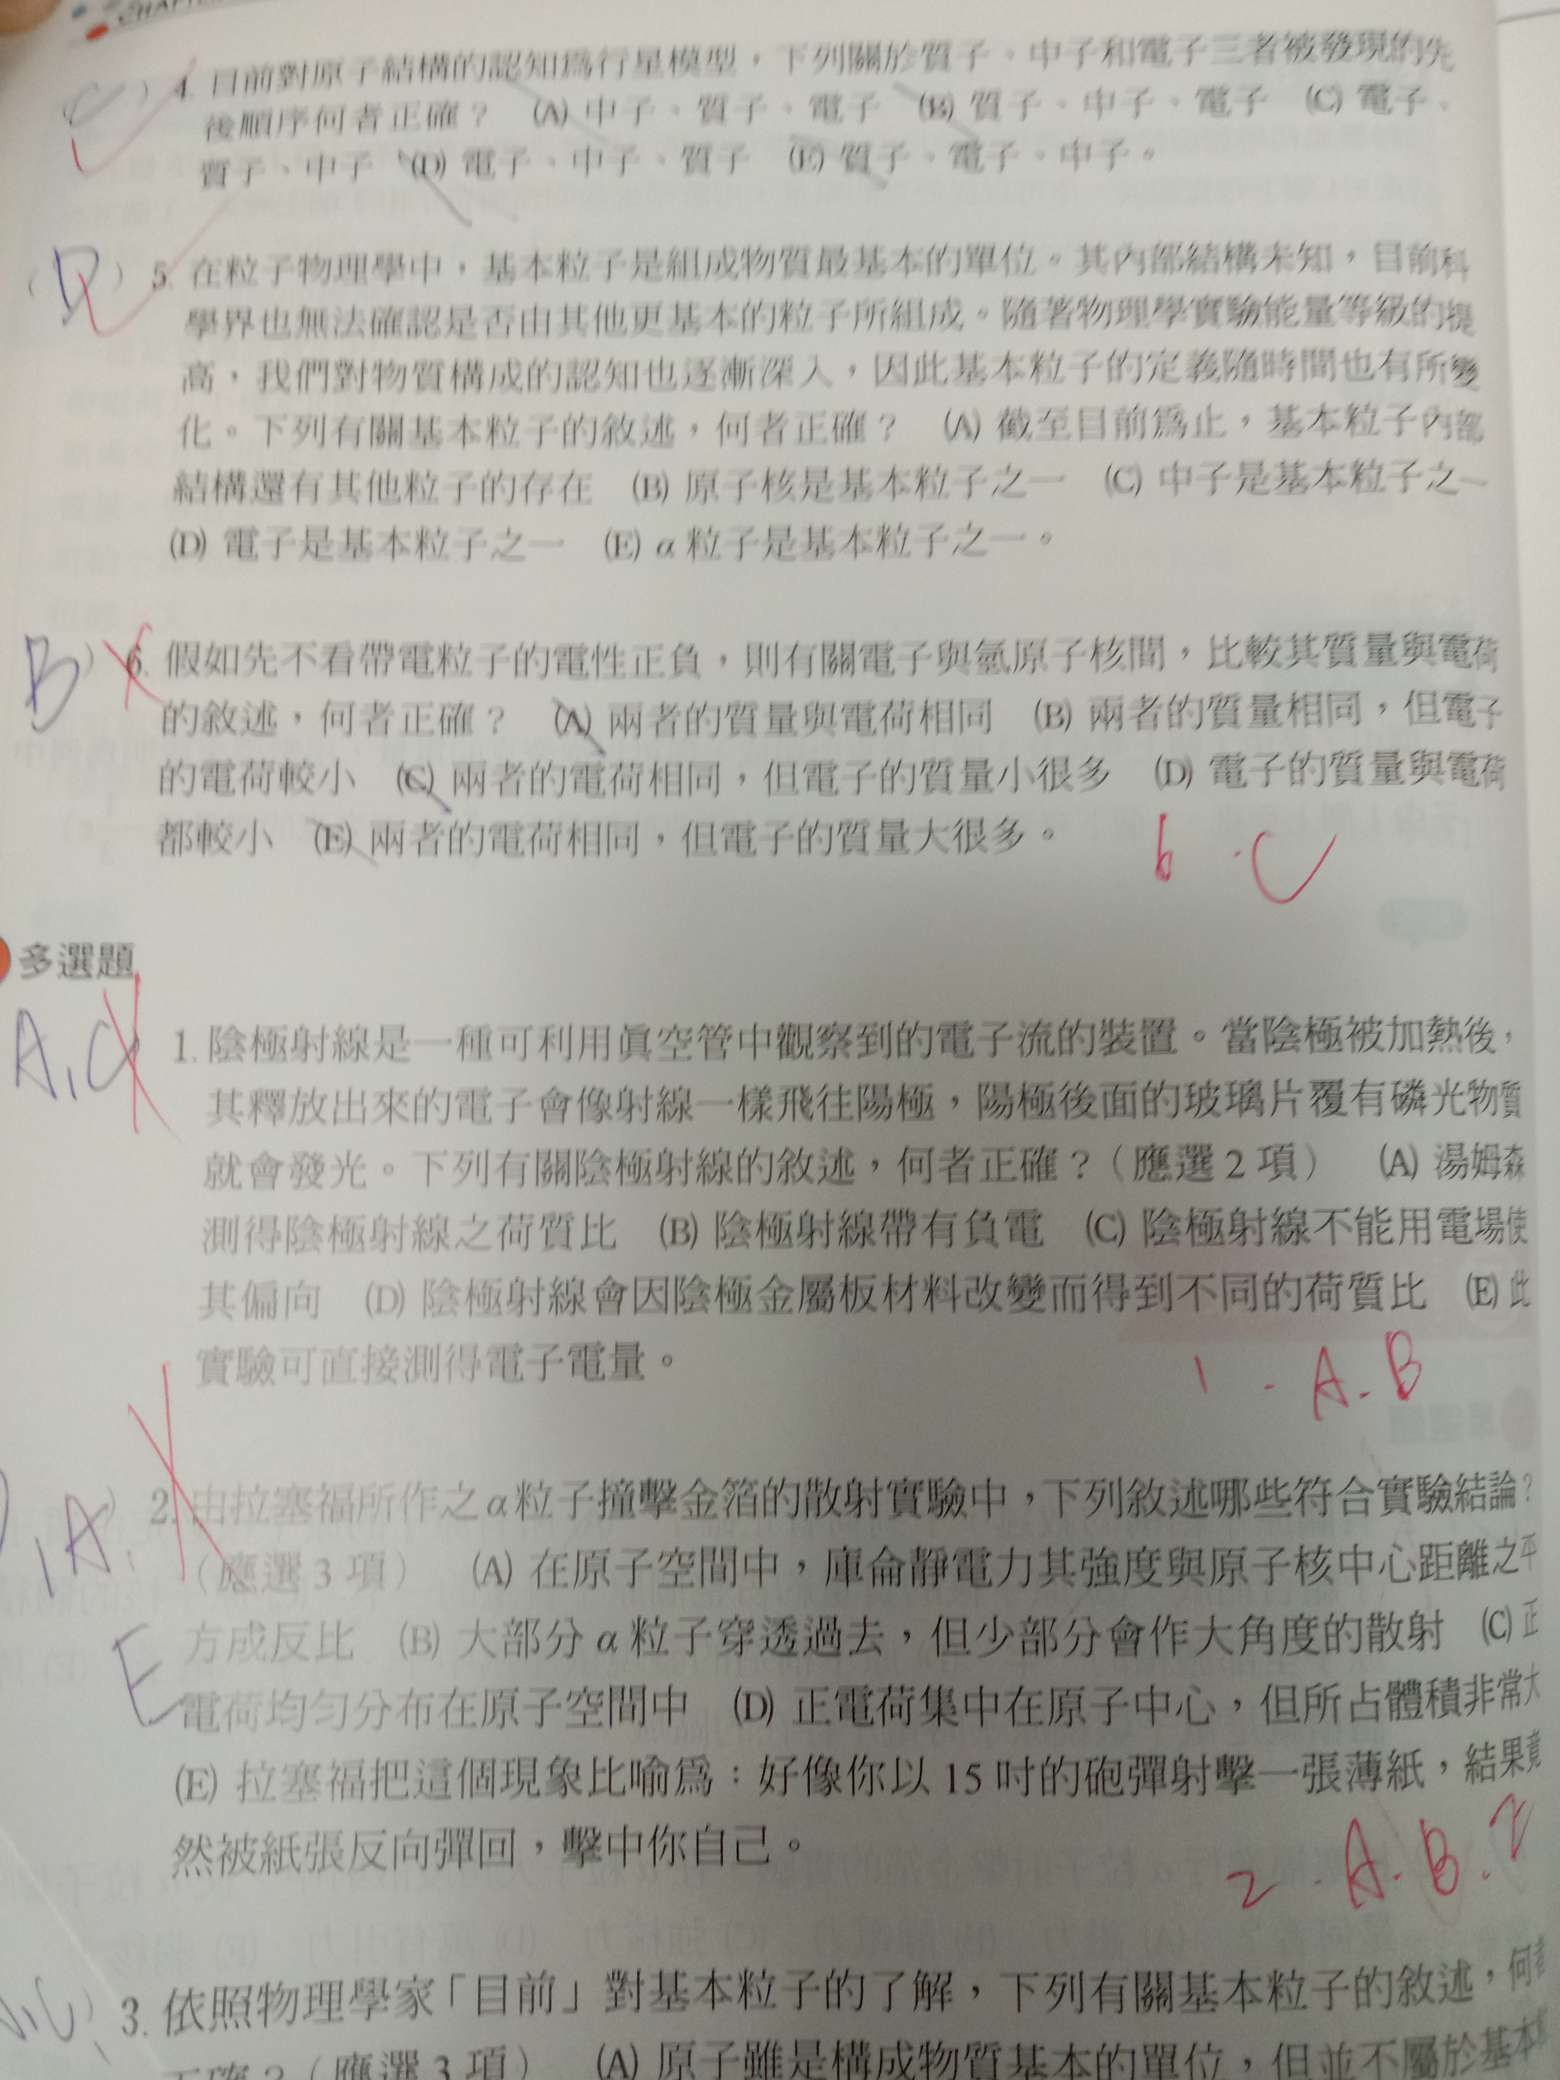 C ) 4. 目前對原子結構的認知為行星模型，下列關於質子、中子和電子三者被發現的先
後順序何者正確？ (A) 中子、質子、電子 (B) 質子、中子、電子 (C) 電子、
質子、中子 (D) 電子、中子、質子 (E) 質子、電子、中子。
( D ) 5. 在粒子物理學中，基本粒子是組成物質最基本的單位。其內部結構未知，目前科
學界也無法確認是否由其他更基本的粒子所組成。隨著物理學實驗能量等級的提
高，我們對物質構成的認知也逐漸深入，因此基本粒子的定義隨時間也有所變
化。下列有關基本粒子的敘述，何者正確？ (A) 截至目前為止，基本粒子內部
結構還有其他粒子的存在 (B) 原子核是基本粒子之一 (C) 中子是基本粒子之一
(D) 電子是基本粒子之一 (E) α粒子是基本粒子之一。
B ) 6. 假如先不看帶電粒子的電性正負，則有關電子與氫原子核間，比較其質量與電荷
的敘述，何者正確？ (A) 兩者的質量與電荷相同 (B) 兩者的質量相同，但電子
的電荷較小 (C) 兩者的電荷相同，但電子的質量小很多 (D) 電子的質量與電荷
都較小 (E) 兩者的電荷相同，但電子的質量大很多。
6 . C
多選題
A,C 1. 陰極射線是一種可利用真空管中觀察到的電子流的裝置。當陰極被加熱後，
其釋放出來的電子會像射線一樣飛往陽極，陽極後面的玻璃片覆有磷光物質
就會發光。下列有關陰極射線的敘述，何者正確？（應選2項） (A) 湯姆森
測得陰極射線之荷質比 (B) 陰極射線帶有負電 (C) 陰極射線不能用電場使
其偏向 (D) 陰極射線會因陰極金屬板材料改變而得到不同的荷質比 (E) 此
實驗可直接測得電子電量。
1 . A.B
,A, ) 2. 由拉塞福所作之α粒子撞擊金箔的散射實驗中，下列敘述哪些符合實驗結論？
（應選3項） (A) 在原子空間中，庫侖靜電力其強度與原子核中心距離之平
E 方成反比 (B) 大部分α粒子穿透過去，但少部分會作大角度的散射 (C) 正
電荷均勻分布在原子空間中 (D) 正電荷集中在原子中心，但所占體積非常大
(E) 拉塞福把這個現象比喻為：好像你以15吋的砲彈射擊一張薄紙，結果竟
然被紙張反向彈回，擊中你自己。
2 . A.B.
) 3. 依照物理學家「目前」對基本粒子的了解，下列有關基本粒子的敘述，何者
正確？（應選3項） (A) 原子雖是構成物質基本的單位，但並不屬於基本